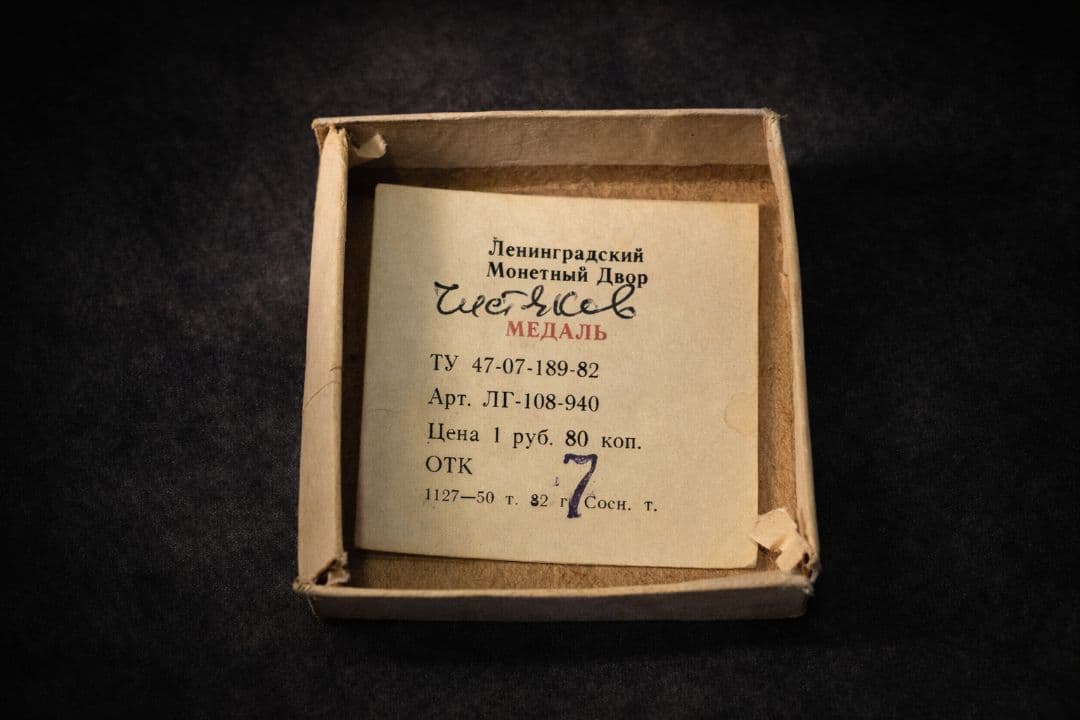 Ленинградский
Монетный Двор
Чистяков
МЕДАЛЬ
ТУ 47-07-189-82
Арт. ЛГ-108-940
Цена 1 руб. 80 коп.
ОТК
7
1127—50 т. 82 г. Сосн. т.